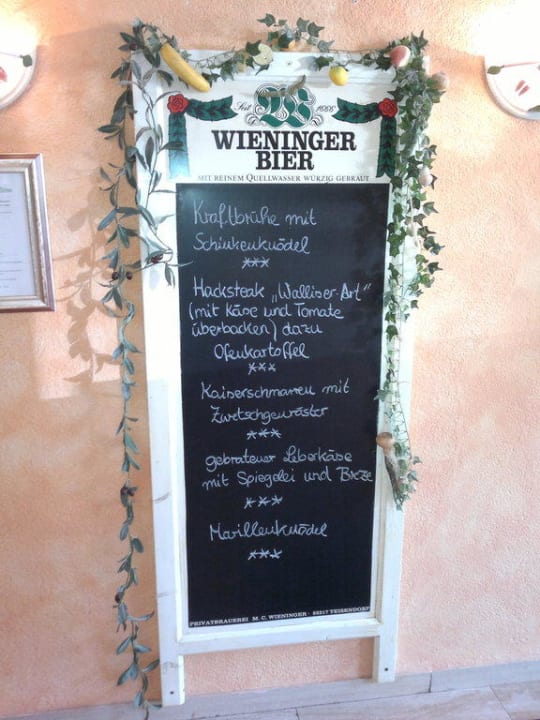 Seit 1666
WIENINGER
BIER
MIT REINEM QUELLWASSER WÜRZIG GEBRAUT
Kraftbrühe mit
Schinkenknödel
***
Hacksteak „Walliser-Art"
(mit Käse und Tomate
überbacken) dazu
Ofenkartoffel
***
Kaiserschmarren mit
Zwetschgenröster
***
gebratener Leberkäse
mit Spiegelei und Breze
***
Marillenknödel
***
PRIVATBRAUEREI M. C. WIENINGER · 83317 TEISENDORF